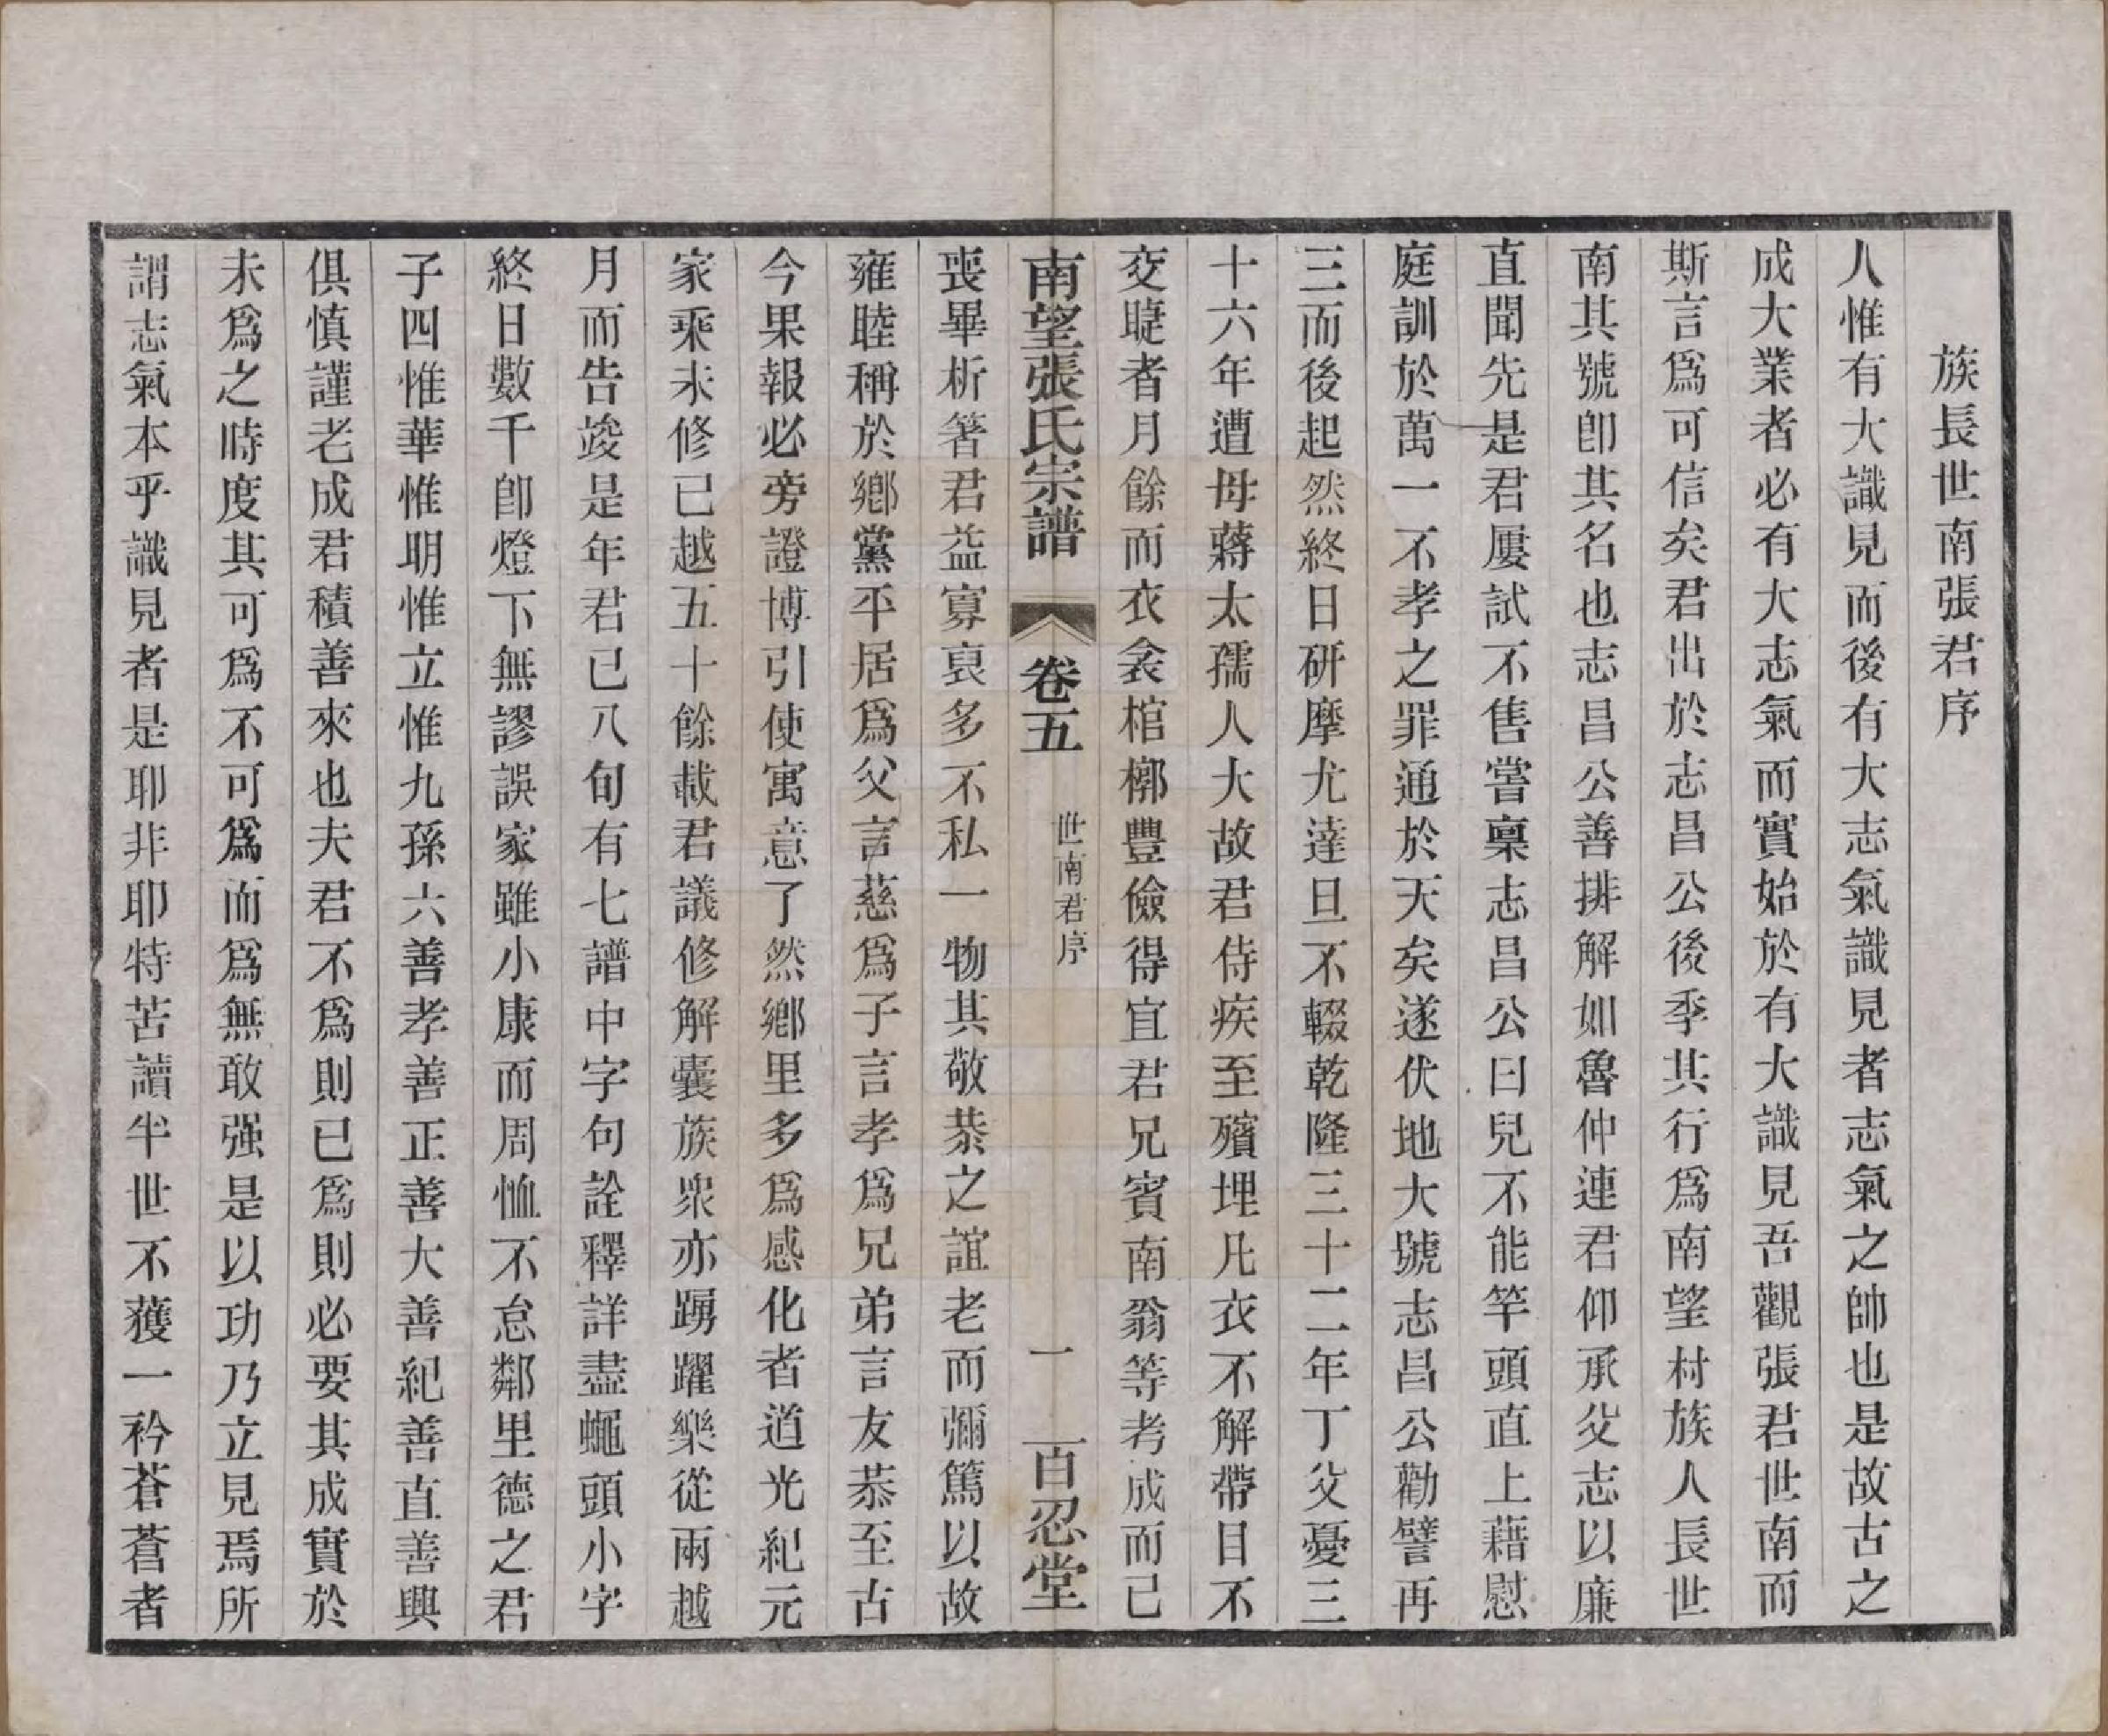 族長世南張君序
人惟有大識見而後有大志氣識見者志氣之帥也是故古之
成大業者必有大志氣而實始於有大識見吾觀張君世南而
斯言爲可信矣君出於志昌公後季其行爲南望村族人長世
南其號卽其名也志昌公善排解如魯仲連君仰承父志以廉
直聞先是君屢試不售嘗稟志昌公曰兒不能竿頭直上藉慰
庭訓於萬一不孝之罪通於天矣遂伏地大號志昌公勸譬再
三而後起然終日研摩尤達旦不輟乾隆三十二年丁父憂三
十六年遭母蔣太孺人大故君侍疾至殯埋凡衣不解帶目不
交睫者月餘而衣衾棺槨豐儉得宜君兄賓南翁等考成而已
南望張氏宗譜 卷五 世南君序 一 百忍堂
喪畢析箸君益寡裒多不私一物其敬恭之誼老而彌篤以故
雍睦稱於鄉黨平居爲父言慈爲子言孝爲兄弟言友恭至古
今果報必旁證博引使寓意了然鄉里多爲感化者道光紀元
家乘未修已越五十餘載君議修解囊族眾亦踴躍樂從兩越
月而告竣是年君已八旬有七譜中字句詮釋詳盡蠅頭小字
終日數千卽燈下無謬誤家雖小康而周恤不怠鄰里德之君
子四惟華惟明惟立惟九孫六善孝善正善大善紀善直善興
俱慎謹老成君積善來也夫君不爲則已爲則必要其成實於
未爲之時度其可爲不可爲而爲無敢强是以功乃立見焉所
謂志氣本乎識見者是耶非耶特苦讀半世不獲一衿蒼蒼者